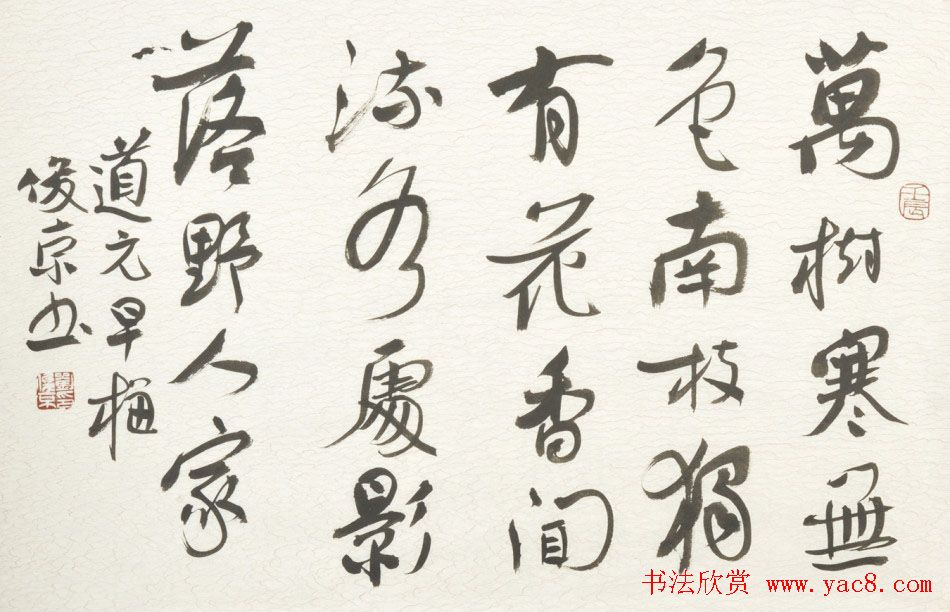 萬樹寒無
色南枝獨
有花香聞
流水處影
落野人家
道元早梅
俊京书
书法欣赏 www.yac8.com